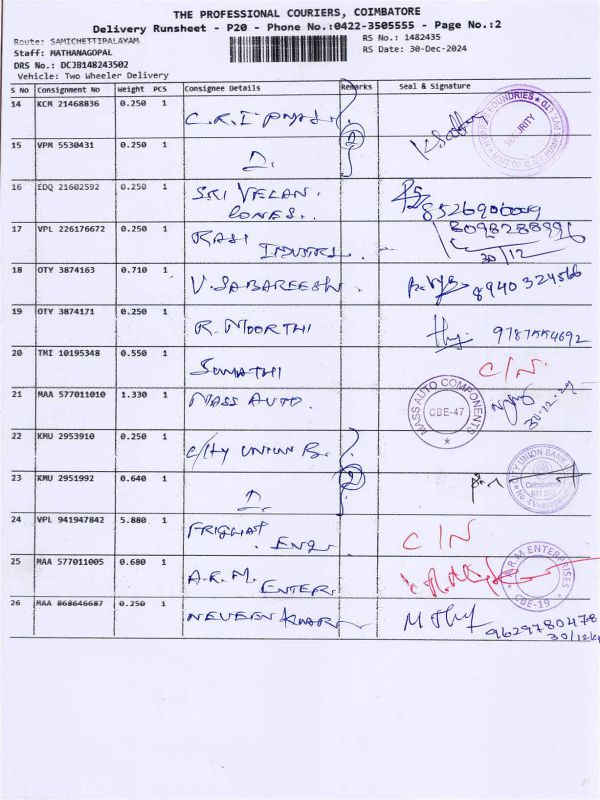 THE PROFESSIONAL COURIERS, COIMBATORE
Delivery Runsheet - P20 - Phone No.:0422-3505555 - Page No.:2
Route: SAMICHETTIPALAYAM
RS No.: 1482435
Staff: MATHANAGOPAL
RS Date: 30-Dec-2024
DRS No.: DCJB148243502
Vehicle: Two Wheeler Delivery
S No Consignment No Weight PCS Consignee Details Remarks Seal & Signature
14 KCM 21468836 0.250 1 C.R.I
SECURITY
15 VPM 5530431 0.250 1
2
16 EDQ 21602592 0.250 1 SRI VELAN.
8526906009
17 VPL 226176672 0.250 1 RASI
8098288996
30/12
18 OTY 3874163 0.710 1 V. SABAREESH. 8940324566
19 OTY 3874171 0.250 1 R. MOORTHI 9787554692
20 TMI 10195348 0.550 1 SUMATHI C/N.
21 MAA 577011010 1.330 1 MASS AUTO.
MASS AUTO COMPONENTS
CBE-47
30-12-24
22 KMU 2953910 0.250 1 C/ty UNION B.
CITY UNION BANK
23 KMU 2951992 0.640 1
2
24 VPL 941947842 5.880 1
C/N
25 MAA 577011005 0.680 1 A.R.M. ENTER.
A.R.M ENTERPRISES
CBE-19
26 MAA 868646687 0.250 1 NAVEEN KUMAR
9629780478
30/12/24